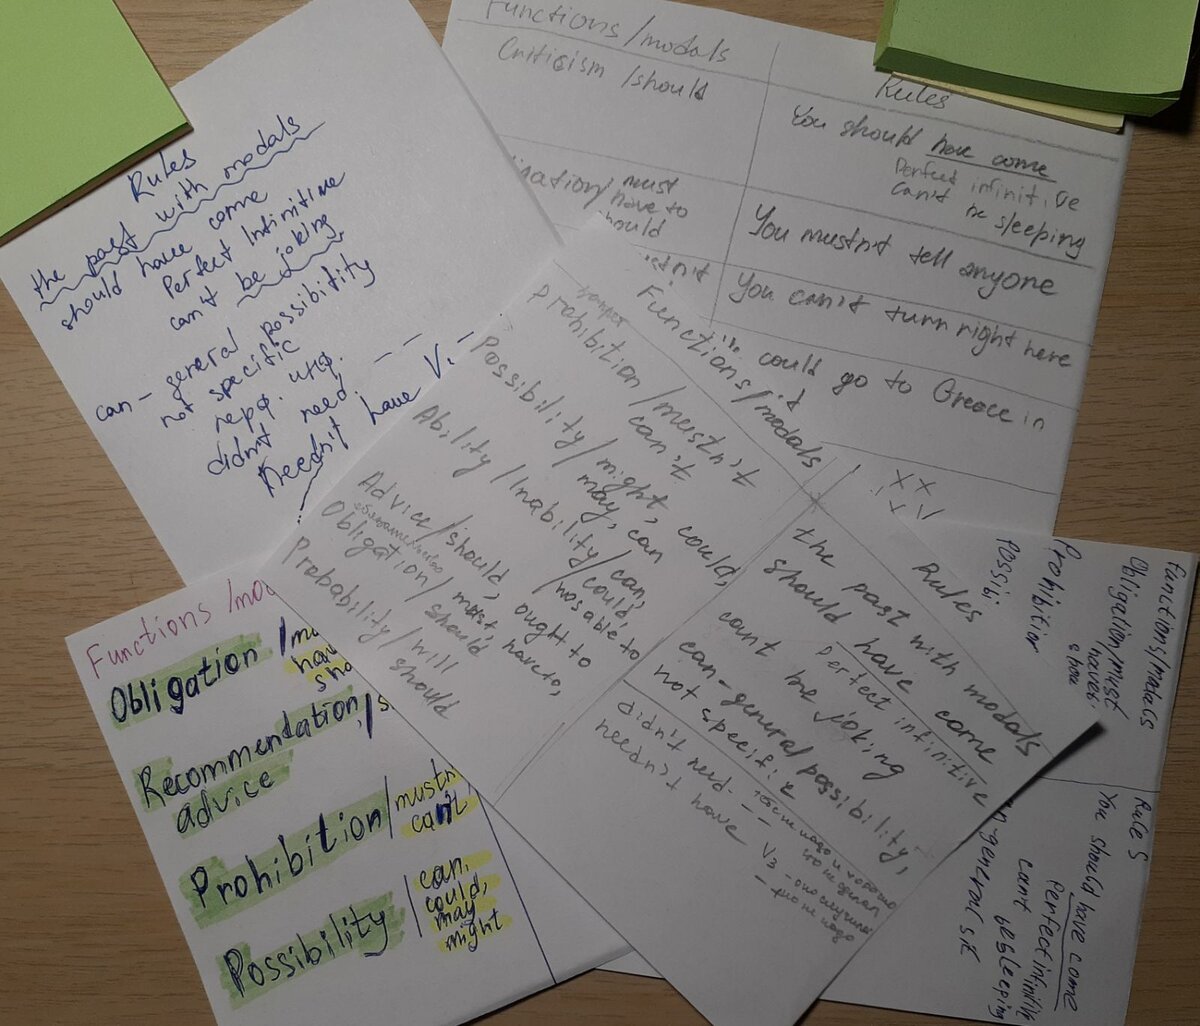 Rules
the past with modals
should have come
Perfect Infinitive
can't be joking
can - general possibility
not specific
didn't need
Needn't have V.
Functions/modals
Criticism/should
Rules
You should have come
Perfect infinitive
can't be sleeping
must
have to
You mustn't tell anyone
You can't turn right here
could go to Greece in
Functions/modals
Prohibition/mustn't
can't
Possibility/might, could,
may, can
Ability/Inability/can,
could,
Advice/should, ought to
Obligation/must, have to,
should
Probability/will
should
Rules
the past with modals
should have come
Perfect infinitive
can't be joking
can-general possibility,
not specific
didn't need
needn't have V3
Functions/mo
Obligation/mu
hav
sho
Recommendation,/s
advice
Prohibition/mustn
can't
Possibility/can,
could,
may
might
Functions/modals
Obligation/must
Prohibition
Possibi
Rules
You should have come
Perfect infinitive
can't be sleeping